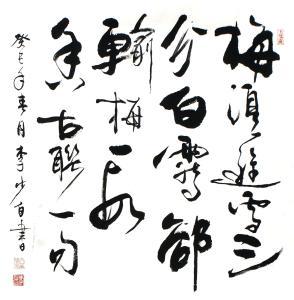 梅須遜雪三
分白雪卻
輸梅一段
香古聯一句
癸巳年春月李少白書